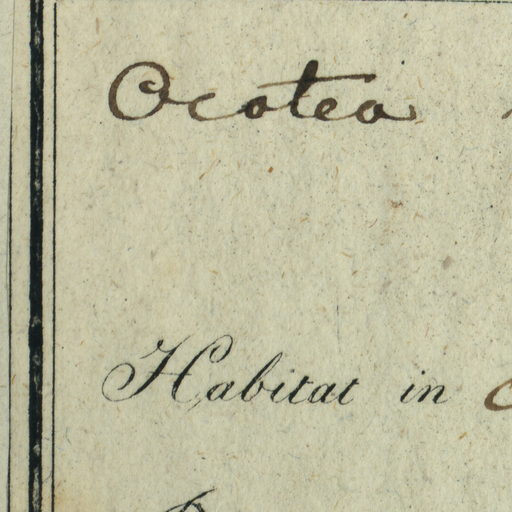 Ocotea
Habitat in